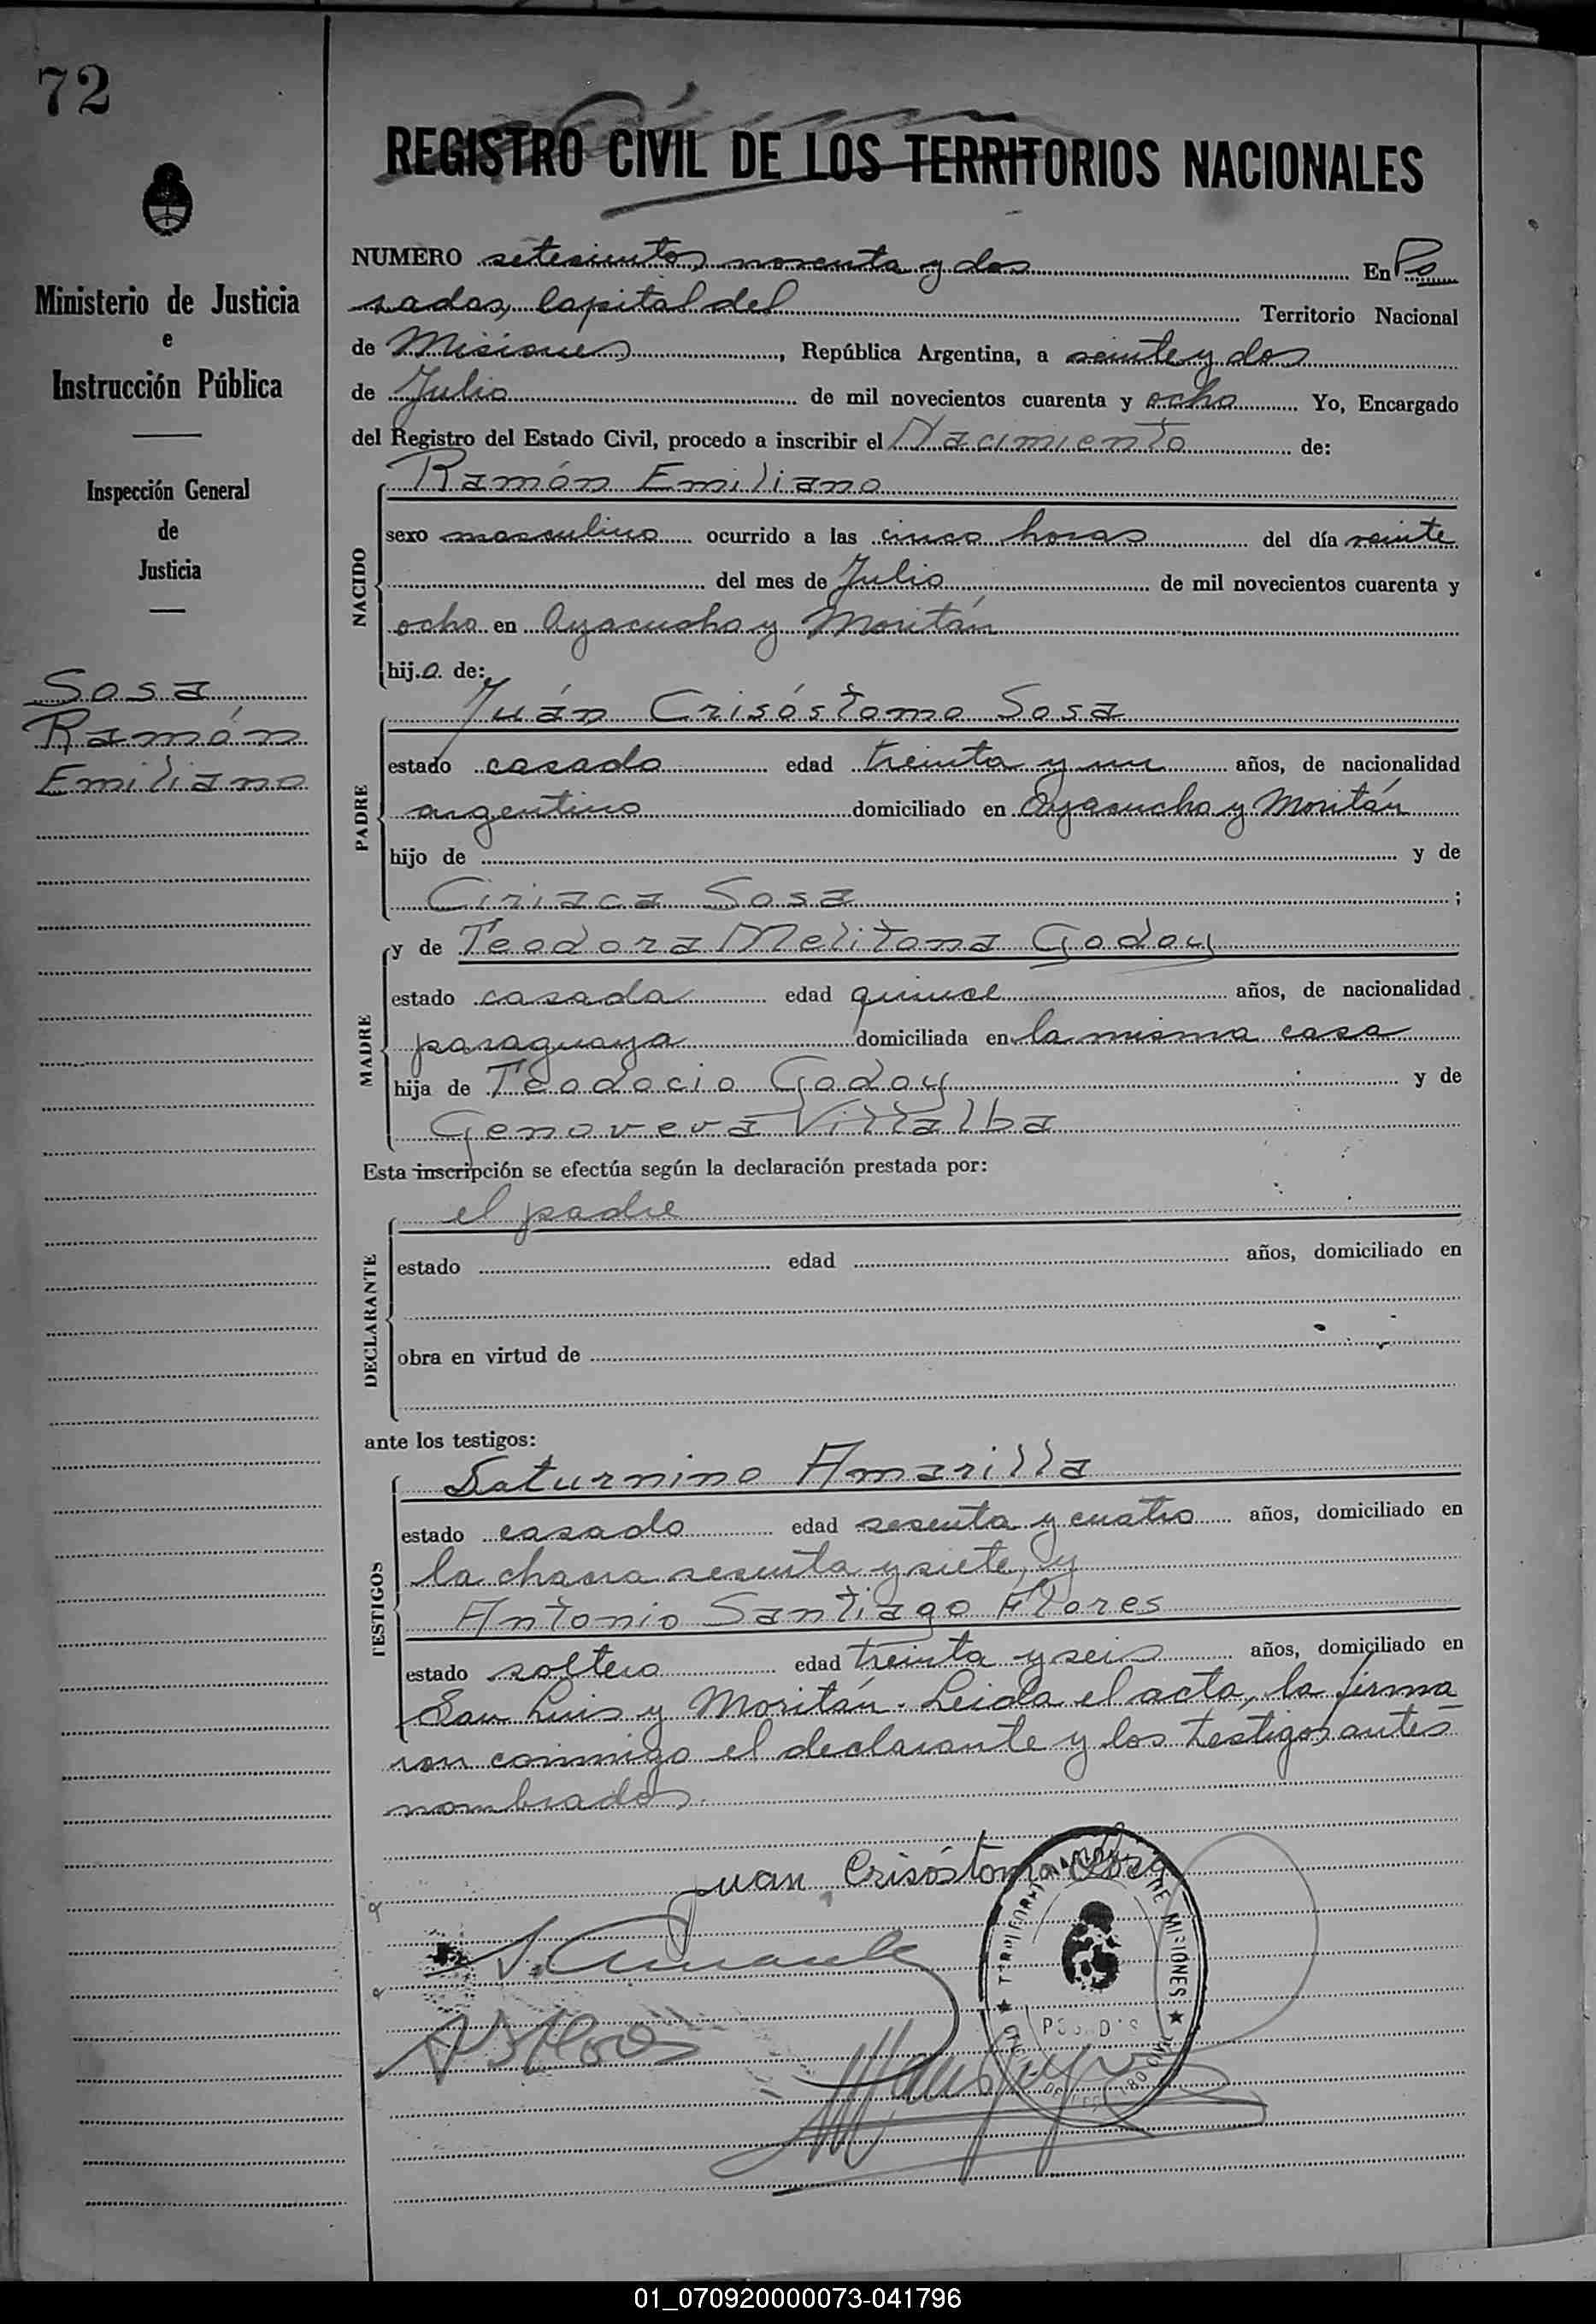 72
Ministerio de Justicia
e
Instrucción Pública
Inspección General
de
Justicia
Sosa
Ramón
Emiliano
REGISTRO CIVIL DE LOS TERRITORIOS NACIONALES
NUMERO setesientos noventa y dos En Po
sadas, Capital del Territorio Nacional
de Misiones, República Argentina, a veinte y dos
de Julio de mil novecientos cuarenta y ocho Yo, Encargado
del Registro del Estado Civil, procedo a inscribir el Nacimiento de:
Ramón Emiliano
NACIDO
sexo masculino ocurrido a las cinco horas del día veinte
del mes de Julio de mil novecientos cuarenta y
ocho en Ayacucho y Moritán
hijo de:
Juán Crisóstomo Sosa
PADRE
estado casado edad treinta y un años, de nacionalidad
argentino domiciliado en Ayacucho y Moritán
hijo de y de
Ciriaca Sosa ;
y de Teodora Melitona Godoy
MADRE
estado casada edad quince años, de nacionalidad
paraguaya domiciliada en la misma casa
hija de Teodocio Godoy y de
Genoveva Villalba
Esta inscripción se efectúa según la declaración prestada por:
el padre
DECLARANTE
estado edad años, domiciliado en
obra en virtud de
ante los testigos:
Saturnino Amarilla
TESTIGOS
estado casado edad sesenta y cuatro años, domiciliado en
la chacra sesenta y siete, y
Antonio Santiago Flores
estado soltero edad treinta y seis años, domiciliado en
San Luis y Moritán. Leida el acta, la firma
ron conmigo el declarante y los testigos antes
nombrados.
Juan Crisóstomo Sosa
DE MISIONES
01_070920000073-041796